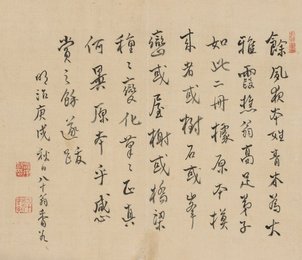 餘夙欽本姓青木為大
雅霞樵翁高足弟子
如此二冊據原本模
来者或樹石或峯
巒或屋榭或橋梁
種々變化筆々正真
何異原本乎感
賞之餘遂跋
明治庚戌秋日八十翁